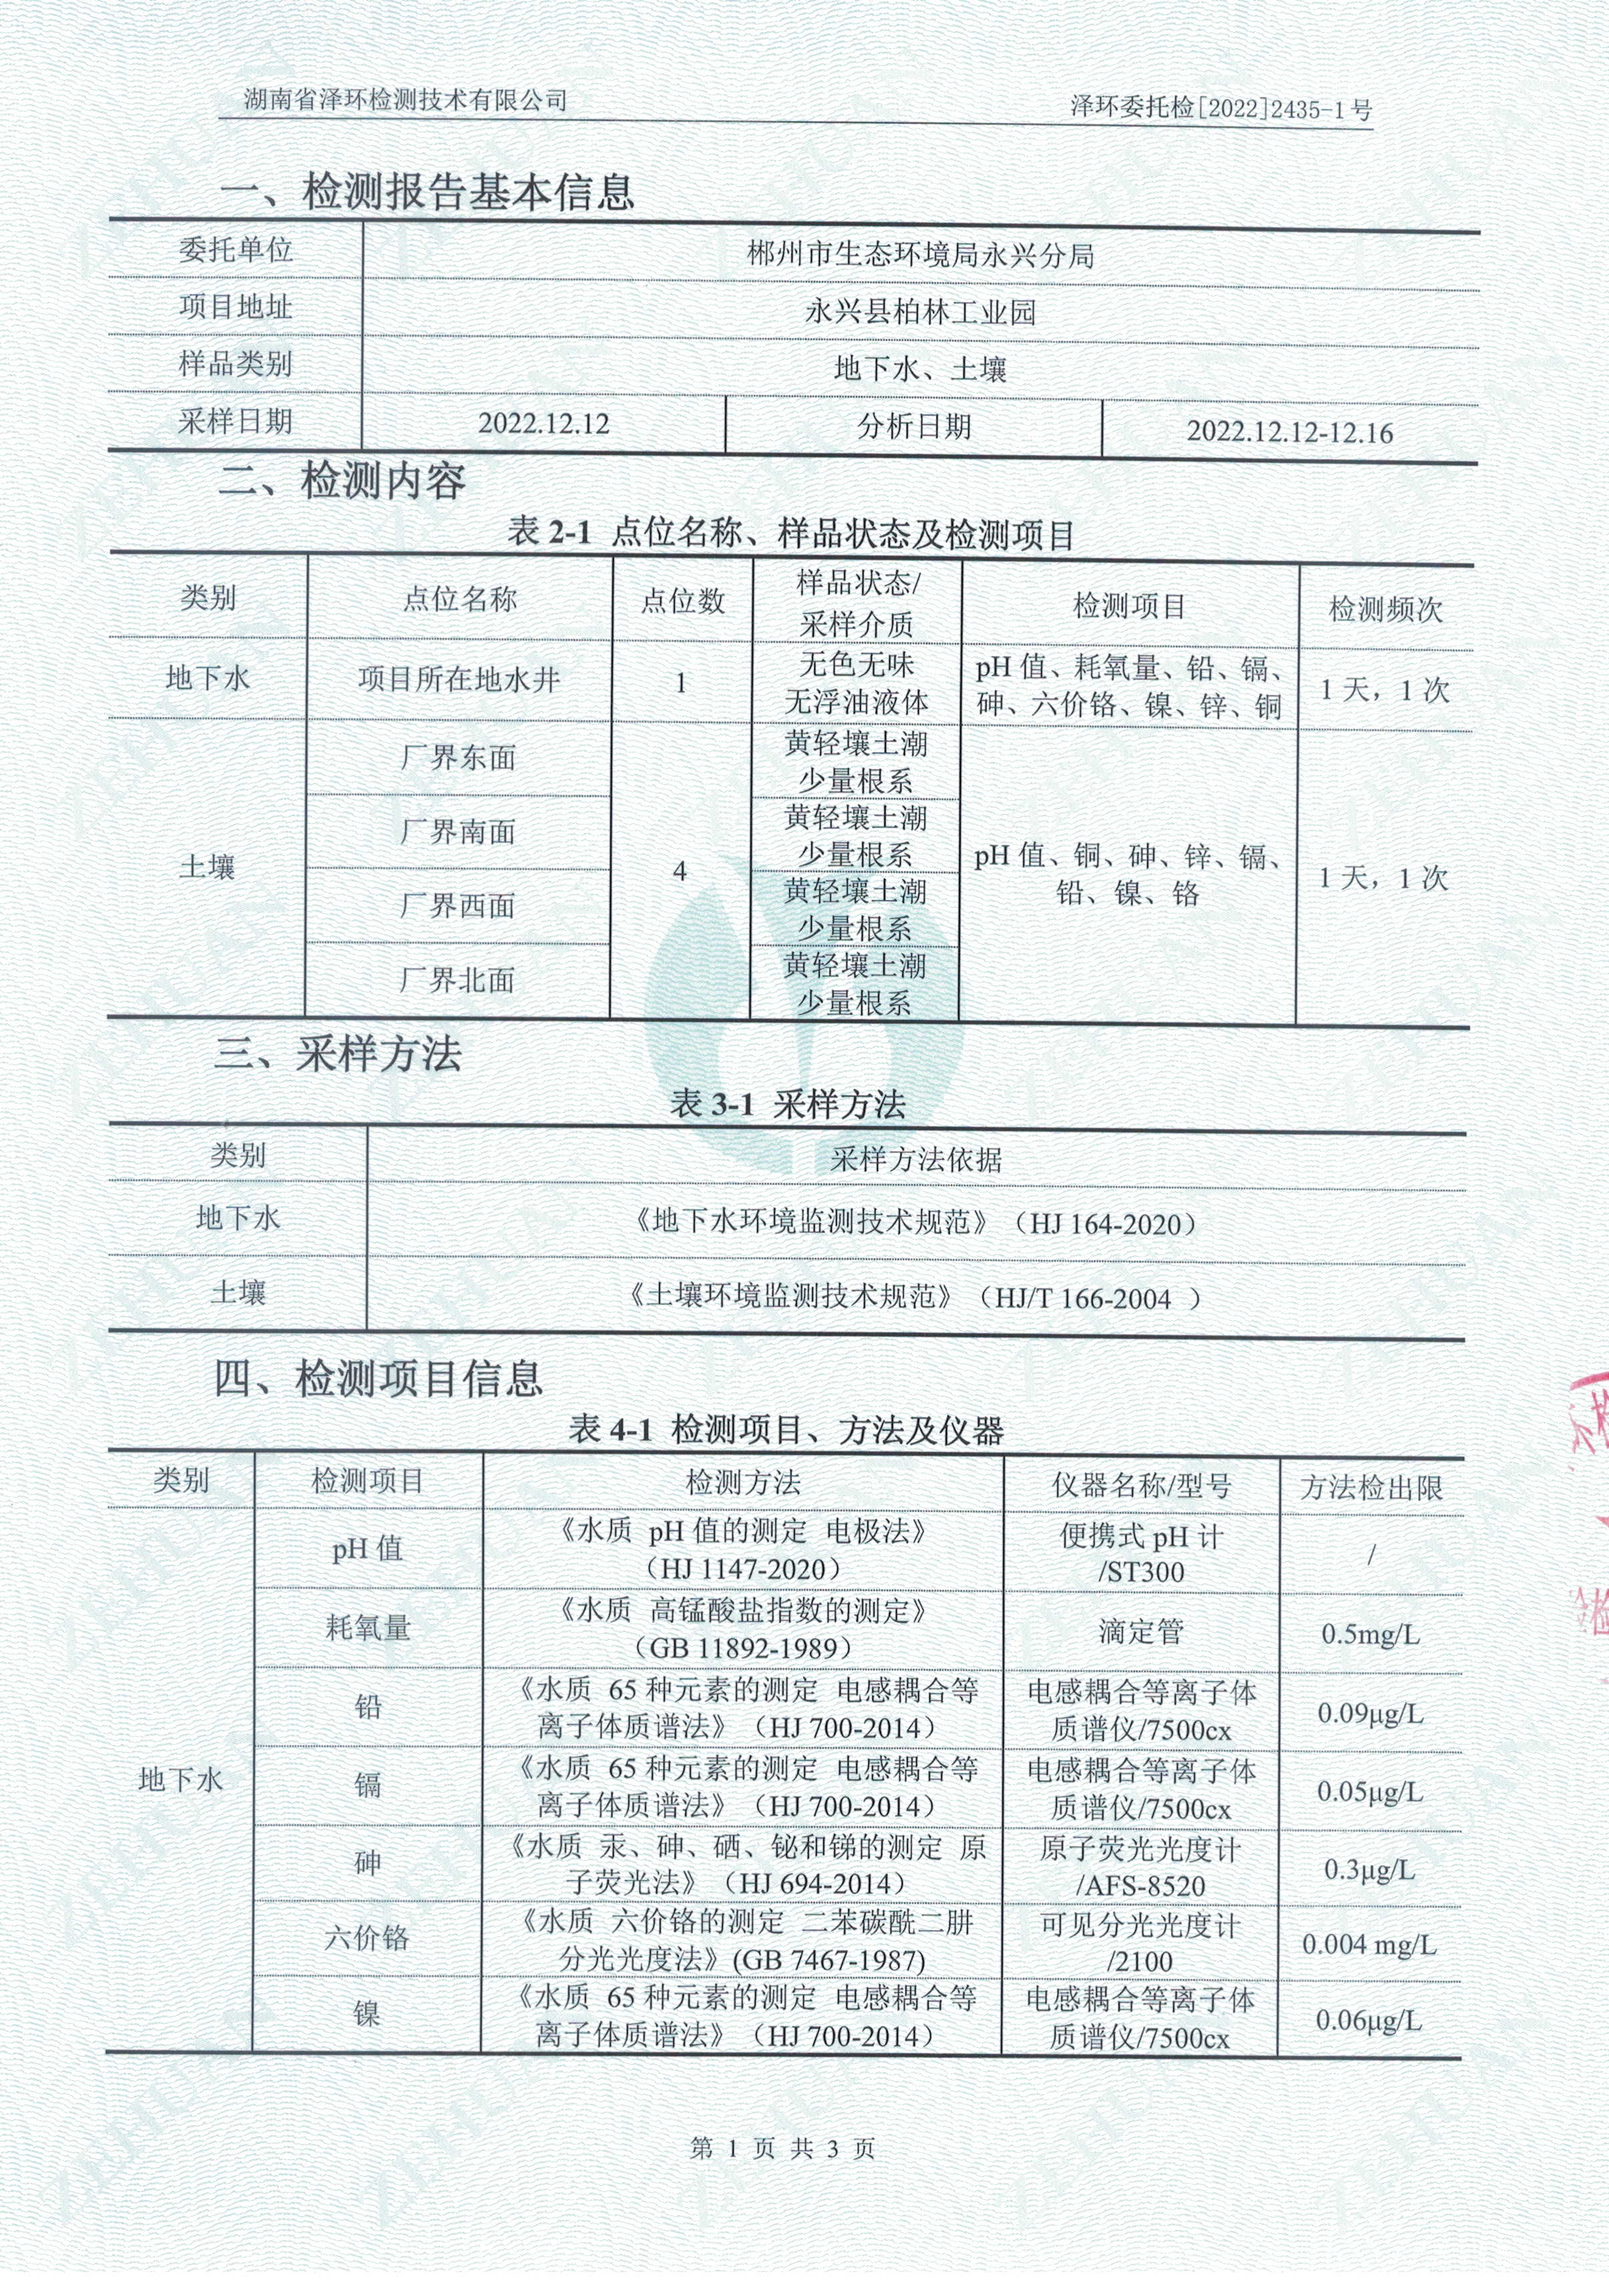 湖南省泽环检测技术有限公司 泽环委托检[2022]2435-1号
一、检测报告基本信息
委托单位 郴州市生态环境局永兴分局
项目地址 永兴县柏林工业园
样品类别 地下水、土壤
采样日期 2022.12.12 分析日期 2022.12.12-12.16
二、检测内容
表 2-1 点位名称、样品状态及检测项目
类别 点位名称 点位数 样品状态/ 检测项目 检测频次
采样介质
地下水 项目所在地水井 1 无色无味 pH 值、耗氧量、铅、镉、 1 天，1 次
无浮油液体 砷、六价铬、镍、锌、铜
土壤 厂界东面 4 黄轻壤土潮 pH 值、铜、砷、锌、镉、 1 天，1 次
少量根系 铅、镍、铬
厂界南面 黄轻壤土潮
少量根系
厂界西面 黄轻壤土潮
少量根系
厂界北面 黄轻壤土潮
少量根系
三、采样方法
表 3-1 采样方法
类别 采样方法依据
地下水 《地下水环境监测技术规范》（HJ 164-2020）
土壤 《土壤环境监测技术规范》（HJ/T 166-2004 ）
四、检测项目信息
表 4-1 检测项目、方法及仪器
类别 检测项目 检测方法 仪器名称/型号 方法检出限
地下水 pH 值 《水质 pH 值的测定 电极法》 便携式 pH 计 /
（HJ 1147-2020） /ST300
耗氧量 《水质 高锰酸盐指数的测定》 滴定管 0.5mg/L
（GB 11892-1989）
铅 《水质 65 种元素的测定 电感耦合等 电感耦合等离子体 0.09μg/L
离子体质谱法》（HJ 700-2014） 质谱仪/7500cx
镉 《水质 65 种元素的测定 电感耦合等 电感耦合等离子体 0.05μg/L
离子体质谱法》（HJ 700-2014） 质谱仪/7500cx
砷 《水质 汞、砷、硒、铋和锑的测定 原 原子荧光光度计 0.3μg/L
子荧光法》（HJ 694-2014） /AFS-8520
六价铬 《水质 六价铬的测定 二苯碳酰二肼 可见分光光度计 0.004 mg/L
分光光度法》(GB 7467-1987) /2100
镍 《水质 65 种元素的测定 电感耦合等 电感耦合等离子体 0.06μg/L
离子体质谱法》（HJ 700-2014） 质谱仪/7500cx
第 1 页 共 3 页